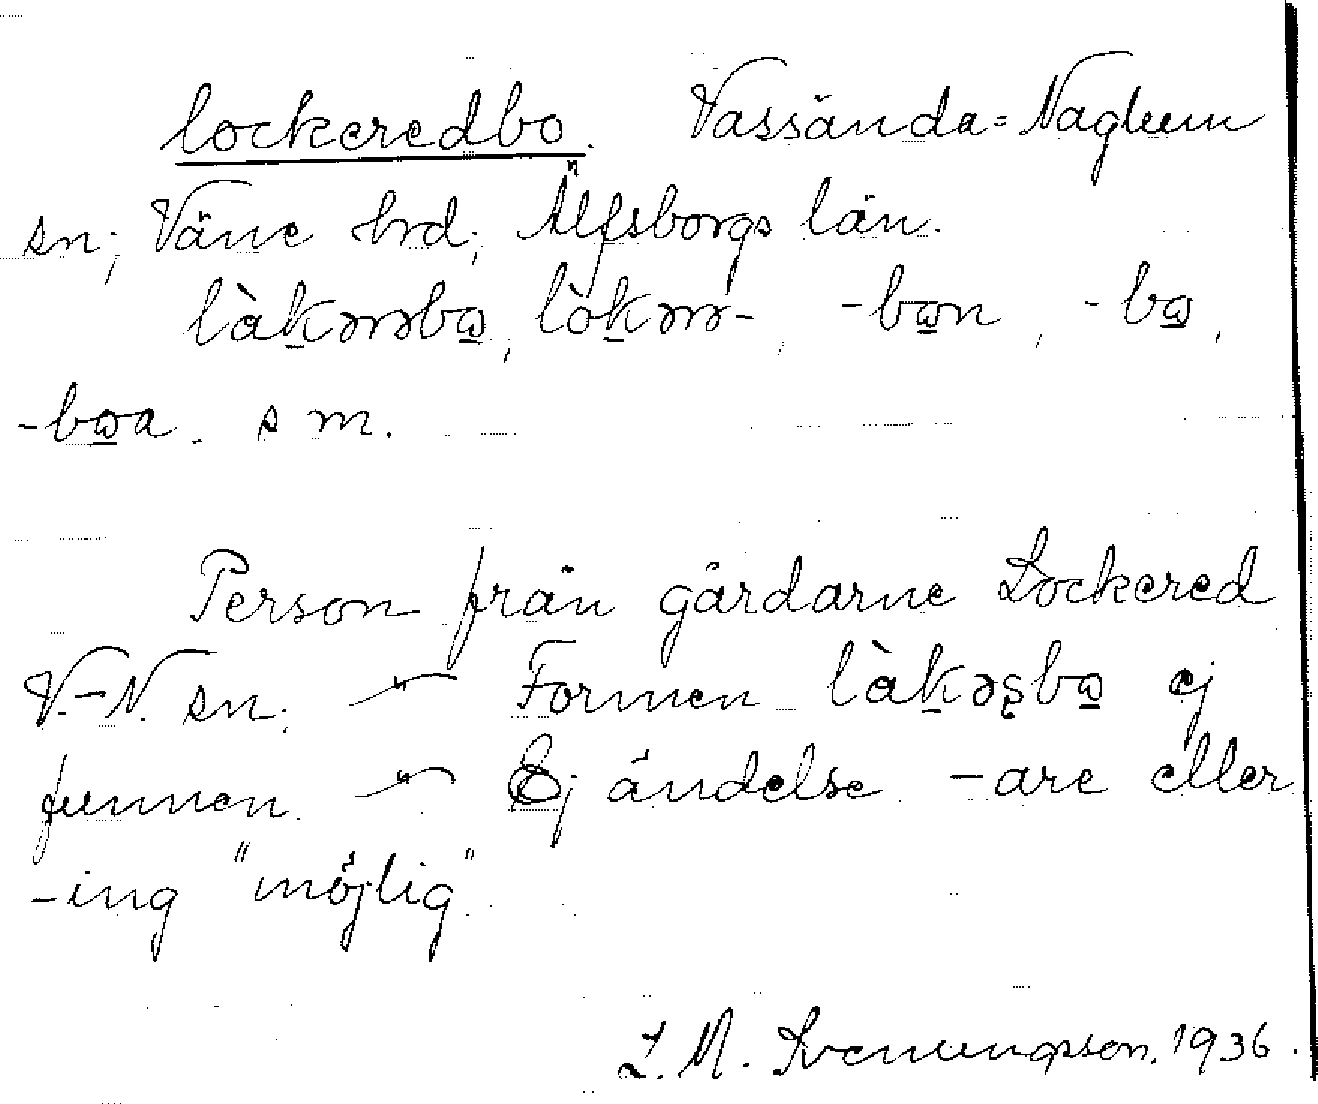 lockeredbo. Vassända-Naglum
sn; Väne hrd; Älfsborgs län.
làk̠ɘrɘbɷ̠, lòk̠ɘrɘ-, -bɷ̠n, -bɷ̠,
-bɷ̠a. s m.
Person från gårdarne Lockered
V.-N. sn. — " — Formen làk̠ɘʂbɷ̠ ej
funnen. — " — Ej ändelse -are eller
-ing "möjlig".
L. M. Svenungsson. 1936.